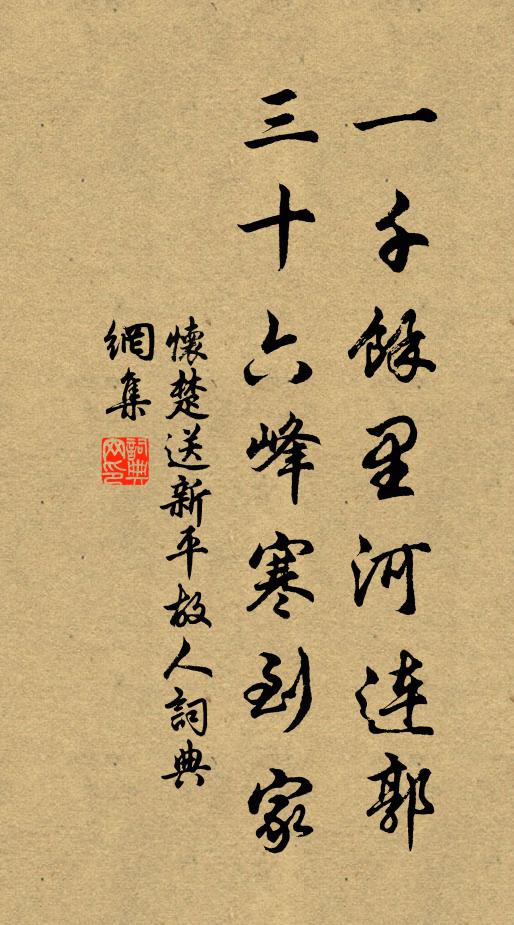 一千餘里河連郭
三十六峰寒到家
懷楚送新平故人詞典
網集
詞典
网印